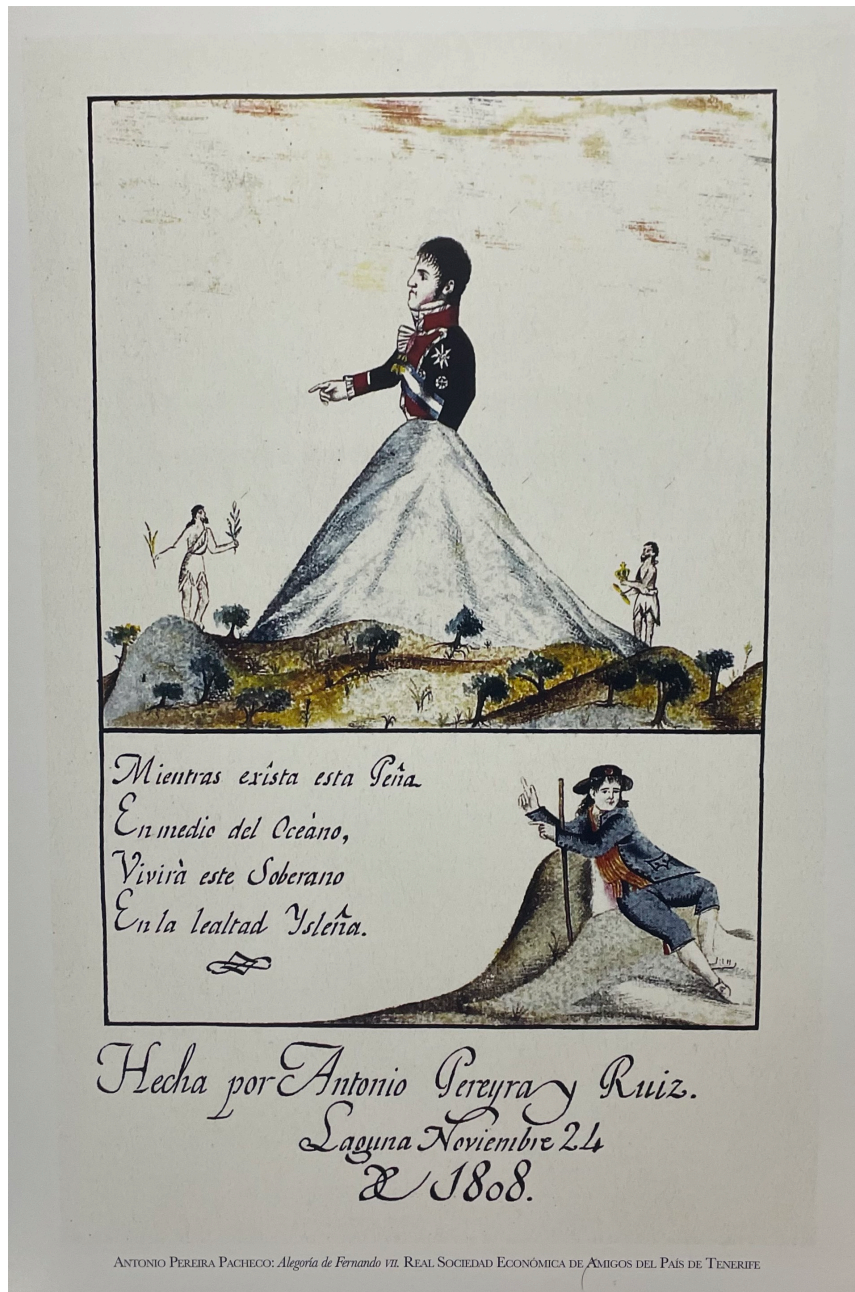 Mientras exîsta esta Peña
En medio del Oceàno,
Vivirà este Soberano
En la lealtad Ysleña.
Hecha por Antonio Pereyra y Ruiz.
Laguna Noviembre 24
de 1808.
ANTONIO PEREIRA PACHECO: Alegoría de Fernando VII. REAL SOCIEDAD ECONÓMICA DE AMIGOS DEL PAÍS DE TENERIFE